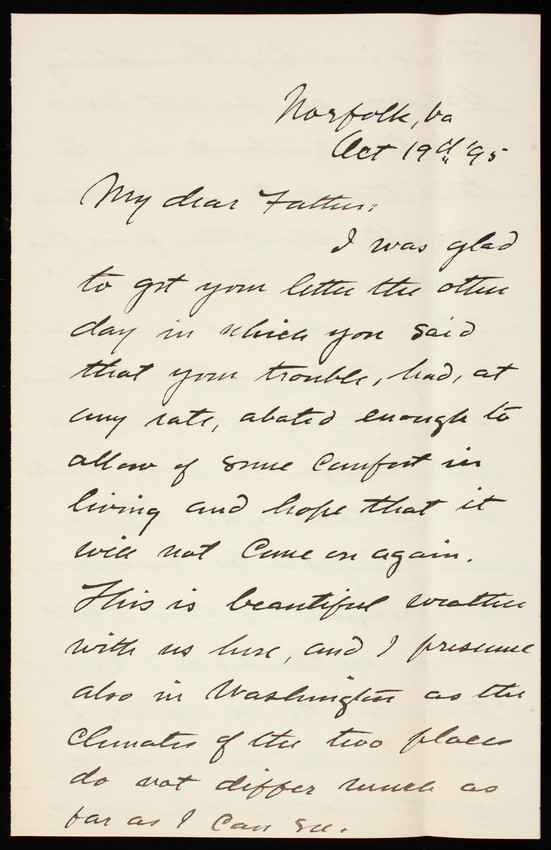 Norfolk, Va
Oct 19th '95
My dear Father:
I was glad
to get your letter the other
day in which you said
that your trouble, had, at
any rate, abated enough to
allow of some comfort in
living and hope that it
will not come on again.
This is beautiful weather
with us here, and I presume
also in Washington as the
climates of the two places
do not differ much as
far as I can see.